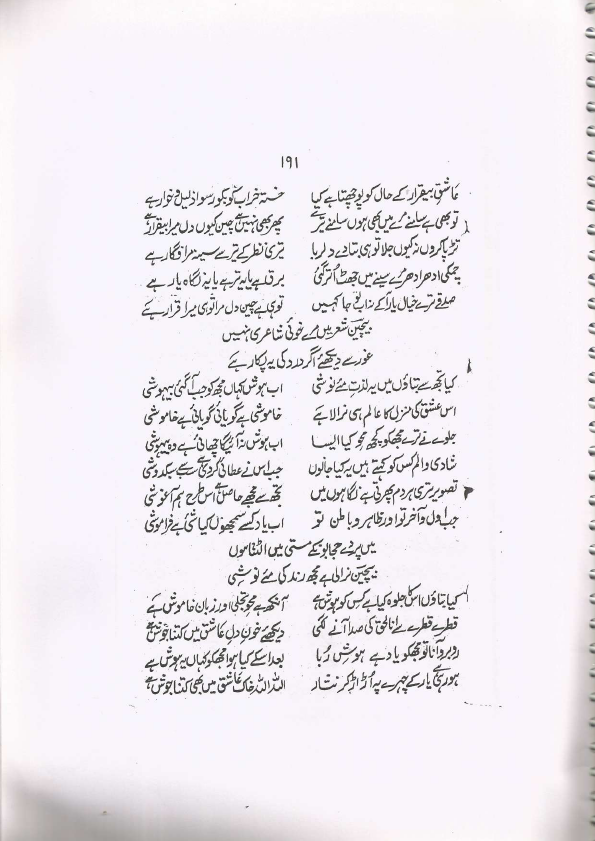 ۱۹۱
عاشقِ بیقرار کے حال کو پوچھتا ہے کیا خستہ خراب کو بکو رسوا ذلیل و خوار ہے
تو بھی ہے سامنے مرے میں بھی ہوں سامنے ترے پھر بھی نہیں ہے چین کیوں دل مرا بیقرار ہے
تڑپا کروں نہ کیوں بھلا تو ہی بتا دے دلربا تیری نظر کے تیر سے سینہ مرا فگار ہے
چمکی ادھر ادھر مرے سینے میں جھٹ اتر گئی برق ہے یا یہ تیر ہے یا یہ نگاہِ یار ہے
صدقے ترے خیال یار آکے نہ اب تو جا کہیں تو ہی ہے چین دل مرا تو ہی میرا قرار ہے
بیچین شعر میں مرے خوئی شاعری نہیں
غور سے دیکھئے اگر درد کی یہ پکار ہے
کیا تجھ سے بتاؤں میں یہ لذتِ مئے نوشی اب ہوش کہاں مجھ کو جب آ گئی بیہوشی
اس عشق کی منزل کا عالم ہی نرالا ہے خاموشی ہے گویائی گویائی ہے خاموشی
جلوے نے ترے مجھ کو کچھ محو کیا ایسا اب ہوش نہ آئیگا چھائی ہے وہ بیہوشی
شادی و الم کس کو کہتے ہیں یہ کیا جانوں جب اس نے عطا کی کر دی ہے سبکدوشی
تصویر تری ہر دم پھرتی ہے نگاہوں میں تجھ سے مجھے حاصل ہے اس طرح ہم آغوشی
جب اول و آخر تو اور ظاہر و باطن تو اب یاد کسے سمجھوں کیا شئی ہے فراموشی
میں پردے حجابو کے مستی میں الٹتا ہوں
بیچین نرالی ہے مجھ رند کی مئے نوشی
کیا بتاؤں اس کا جلوہ کیا ہے کس کو ہوش ہے آنکھ ہے محوِ تجلی اور زبان خاموش ہے
قطرے قطرے سے انا الحق کی صدا آنے لگی دیکھئے خونِ دلِ عاشق میں کتنا جوش ہے
روبرو آنا تو مجھکو یاد ہے ہوش رُبا بعد اسکے کیا ہوا مجھکو کہاں یہ ہوش ہے
ہو رہی ہے یار کے چہرے پہ اُڑ اڑ کر نثار اللہ اللہ خاکِ عاشق میں بھی کتنا جوش ہے